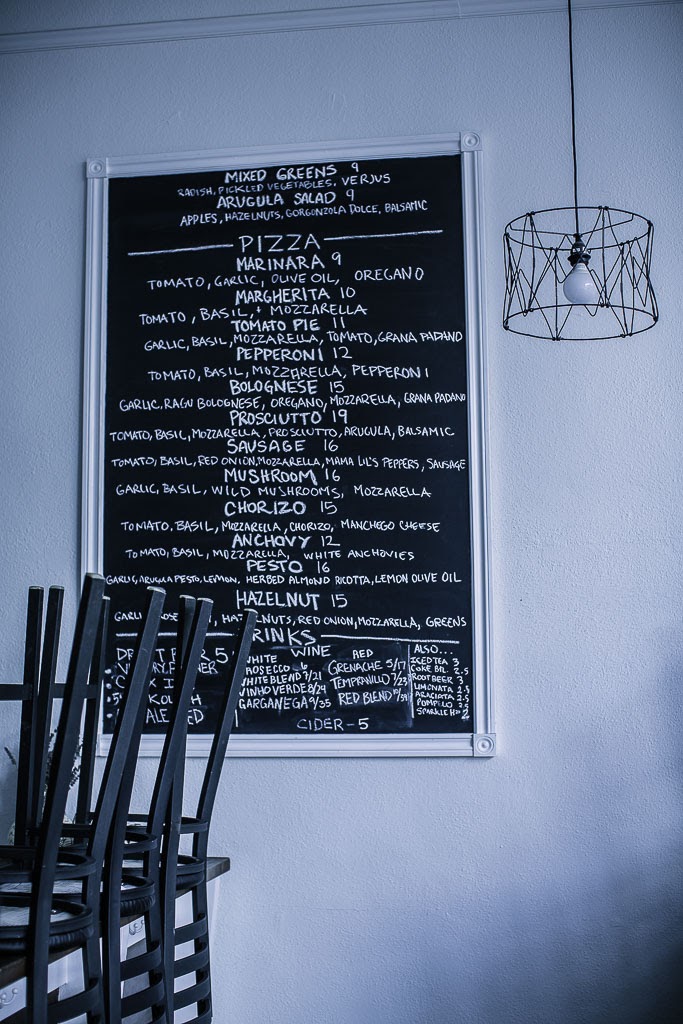 MIXED GREENS 9
RADISH, PICKLED VEGETABLES, VERJUS
ARUGULA SALAD 9
APPLES, HAZELNUTS, GORGONZOLA DOLCE, BALSAMIC
PIZZA
MARINARA 9
TOMATO, GARLIC, OLIVE OIL, OREGANO
MARGHERITA 10
TOMATO, BASIL, + MOZZARELLA
TOMATO PIE 11
GARLIC, BASIL, MOZZARELLA, TOMATO, GRANA PADANO
PEPPERONI 12
TOMATO, BASIL, MOZZARELLA, PEPPERONI
BOLOGNESE 15
GARLIC, RAGU BOLOGNESE, OREGANO, MOZZARELLA, GRANA PADANO
PROSCIUTTO 19
TOMATO, BASIL, MOZZARELLA, PROSCIUTTO, ARUGULA, BALSAMIC
SAUSAGE 16
TOMATO, BASIL, RED ONION, MOZZARELLA, MAMA LIL'S PEPPERS, SAUSAGE
MUSHROOM 16
GARLIC, BASIL, WILD MUSHROOMS, MOZZARELLA
CHORIZO 15
TOMATO, BASIL, MOZZARELLA, CHORIZO, MANCHEGO CHEESE
ANCHOVY 12
TOMATO, BASIL, MOZZARELLA, WHITE ANCHOVIES
PESTO 16
GARLIC, ARUGULA PESTO, LEMON, HERBED ALMOND RICOTTA, LEMON OLIVE OIL
HAZELNUT 15
HAZELNUTS, RED ONION, MOZZARELLA, GREENS
DRINKS
5
WINE
WHITE
PROSECCO 6
WHITE BLEND 7/21
VINHO VERDE 8/24
GARGANEGA 9/35
RED
GRENACHE 5/17
TEMPRANILLO 7/23
RED BLEND 10/39
CIDER - 5
ALSO...
ICED TEA 3
COKE BTL. 2.5
ROOT BEER 3
LIMONATA 2.5
ARACIATA 2.5
POMPELO 2.5
SPARKLE H2O 2